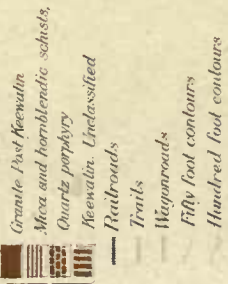 Granite Post Keewatin
Mica and hornblendic schists,
Quartz porphyry
Keewatin. Unclassified
Railroads
Trails
Wagonroads
Fifty foot contours
Hundred foot contours